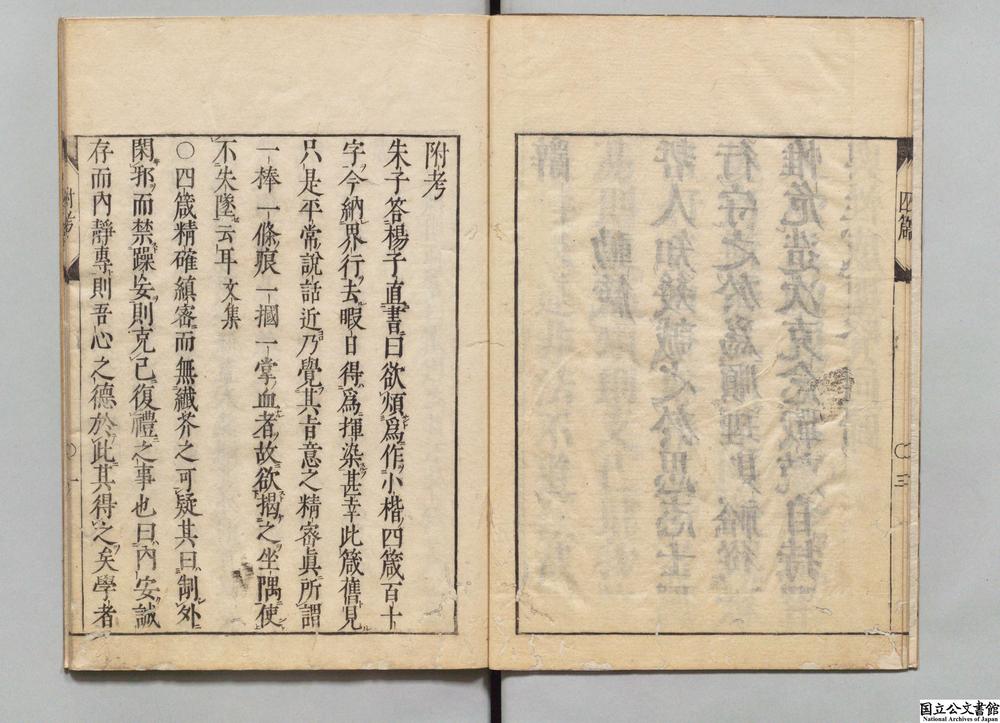 四箴
〇三
附考
朱子答楊子直書曰欲煩爲作小楷四箴百十
字今納界行去暇日得爲揮染甚幸此箴舊見
只是平常説話近乃覺其旨意之精密眞所謂
一棒一條痕一摑一掌血者故欲揭之坐隅使
不失墜云耳文集
〇四箴精確縝密而無纖芥之可疑其曰制外
閑邪而禁躁妄則克己復禮之事也曰內安誠
存而內靜專則吾心之德於此其得之矣學者
附考
〇一
国立公文書館
National Archives of Japan